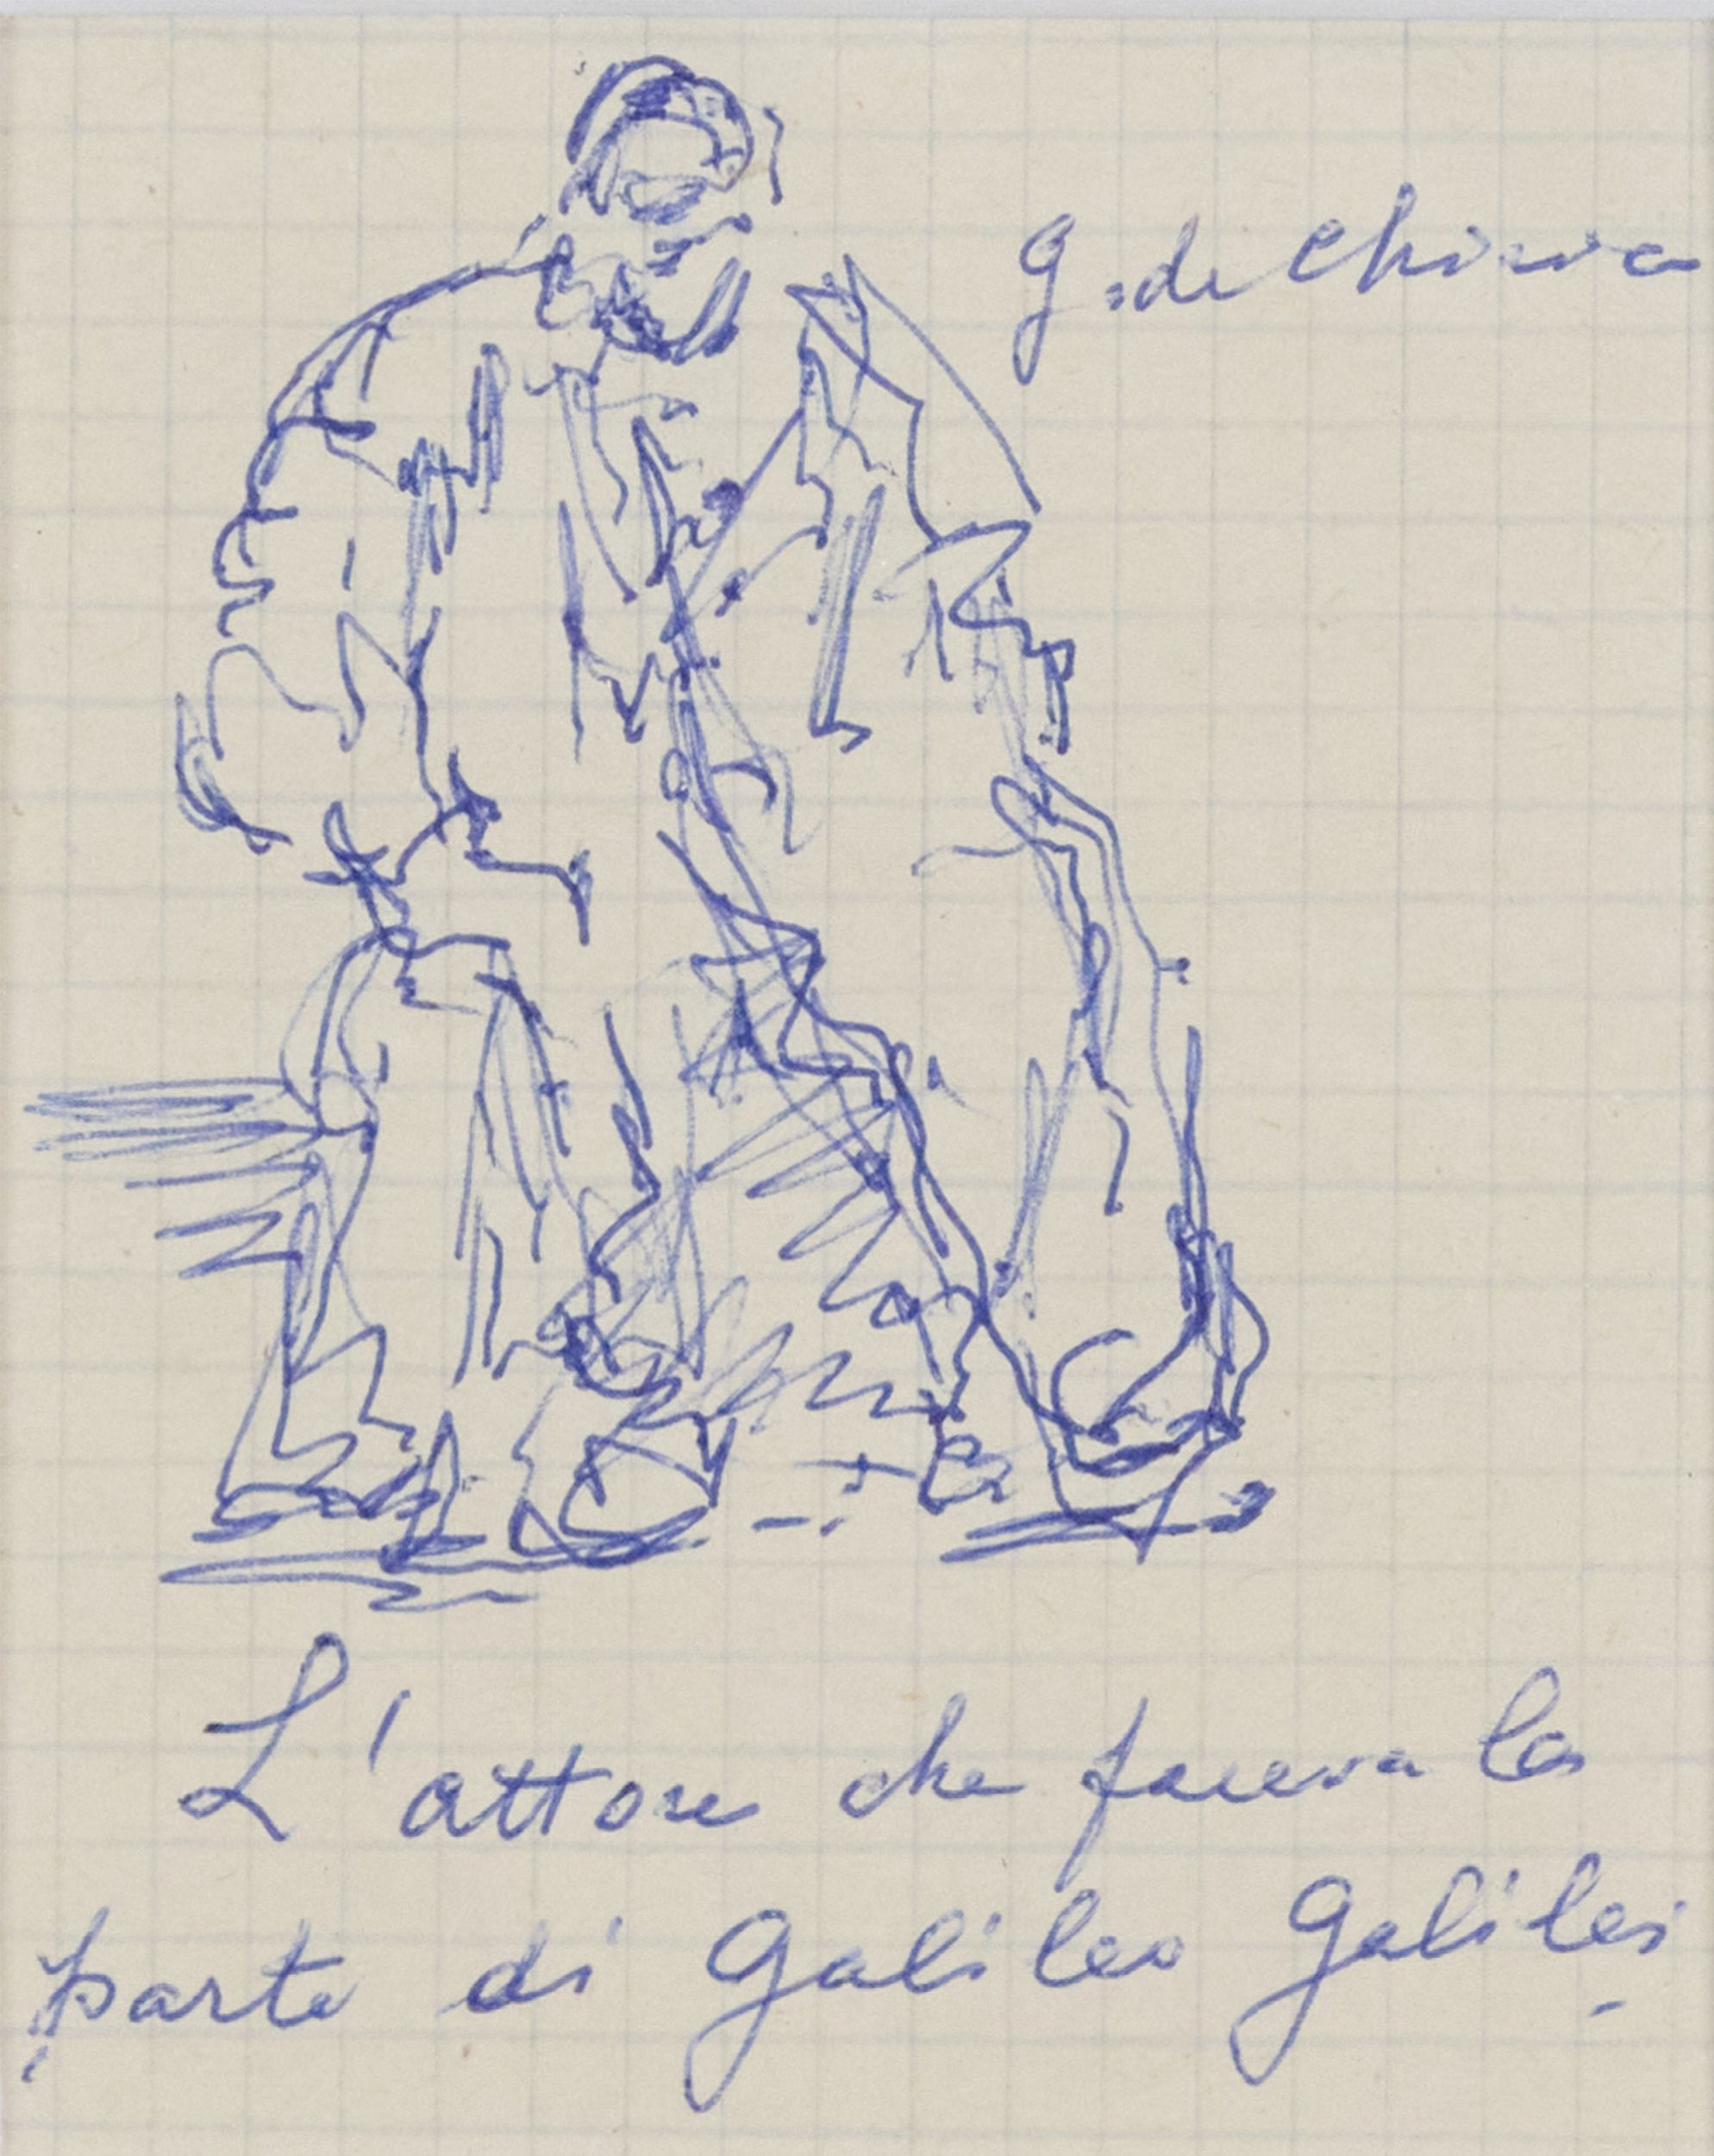 g. de Chirico
L'attore che faceva la
parte di Galileo Galilei